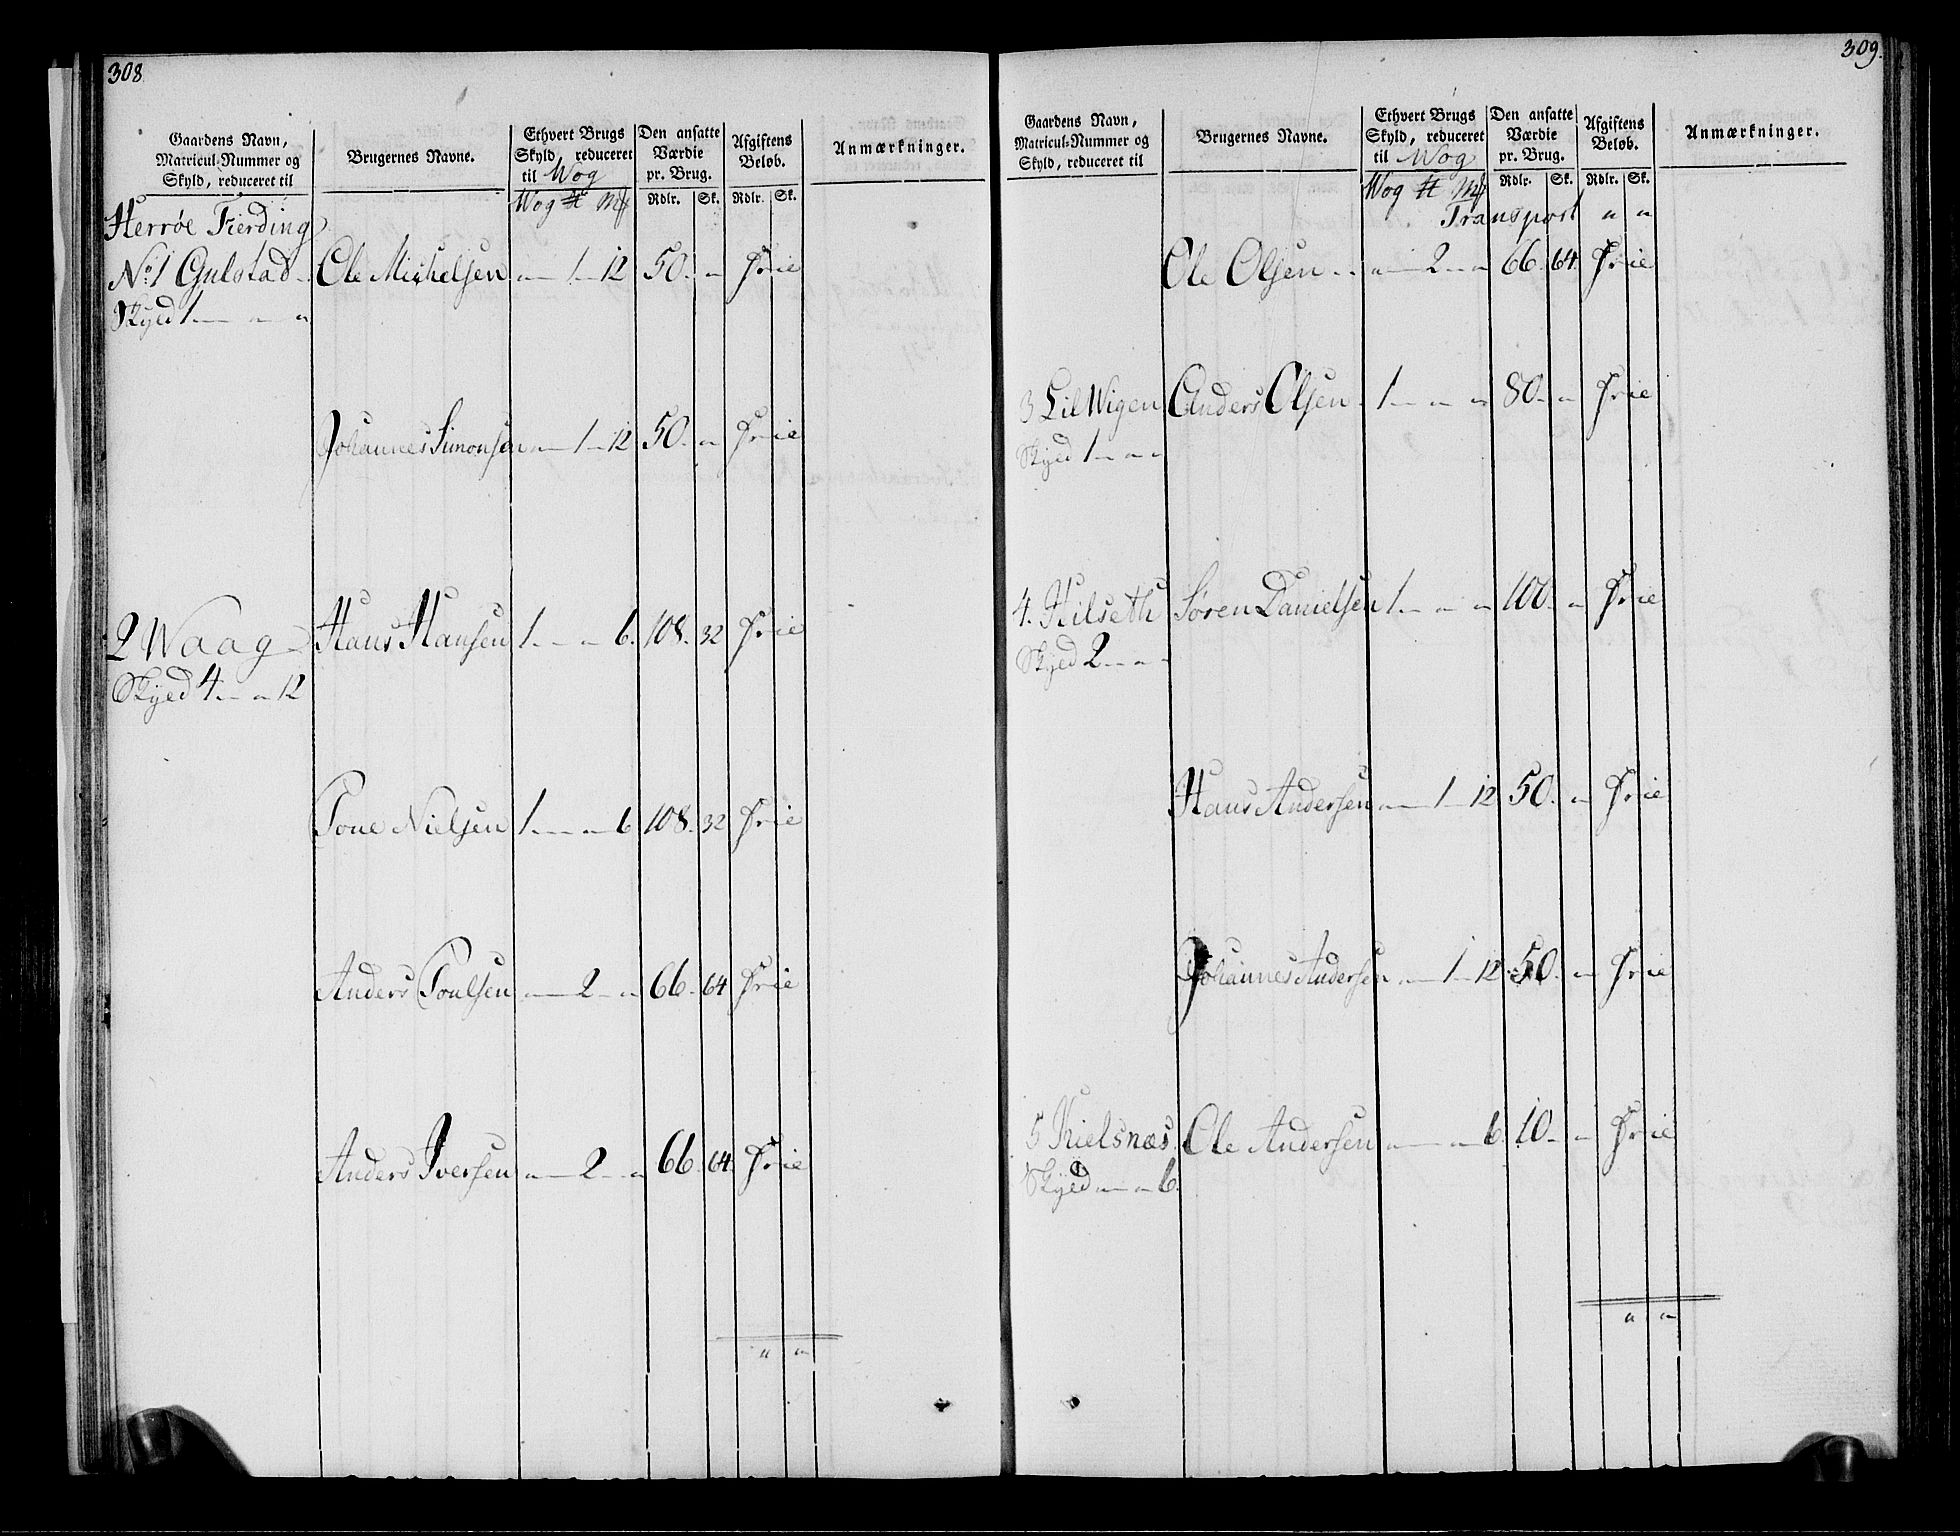 308
Gaardens Navn, Matricul-Nummer og Skyld, reduceret til
Brugernes Navne.
Ethvert Brugs Skyld, reduceret til Wog
Den ansatte Værdie pr. Brug.
Afgiftens Beløb.
Anmærkninger.
Wog ℔ M℔ Rdlr. Sk. Rdlr. Sk.
Herrøe Fierding
No. 1 Gulstad Ole Michelsen " 1 12 50 " Frie
Skyld 1 " "
Johannes Simonsen " 1 12 50 " Frie
2 Waag Hans Hansen 1 " 6 108 32 Frie
Skyld 4 " 12
Tone Nielsen 1 " 6 108 32 Frie
Anders Poulsen " 2 " 66 64 Frie
Anders Iversen " 2 " 66 64 Frie
" "
309.
Gaardens Navn, Matricul-Nummer og Skyld, reduceret til
Brugernes Navne.
Ethvert Brugs Skyld, reduceret til Wog
Den ansatte Værdie pr. Brug.
Afgiftens Beløb.
Anmærkninger.
Wog ℔ M℔ Rdlr. Sk. Rdlr. Sk.
Transport " "
Ole Olsen " 2 " 66 64 Frie
3 Lil Wigen Anders Olsen 1 " " 80 " Frie
Skyld 1 " "
4. Hilseth Søren Danielsen 1 " " 100 " Frie
Skyld 2 " "
Hans Andersen " 1 12 50 " Frie
Johannes Andersen " 1 12 50 " Frie
5 Kielsnæs Ole Andersen " " 6 10 " Frie
Skyld " " 6.
" "